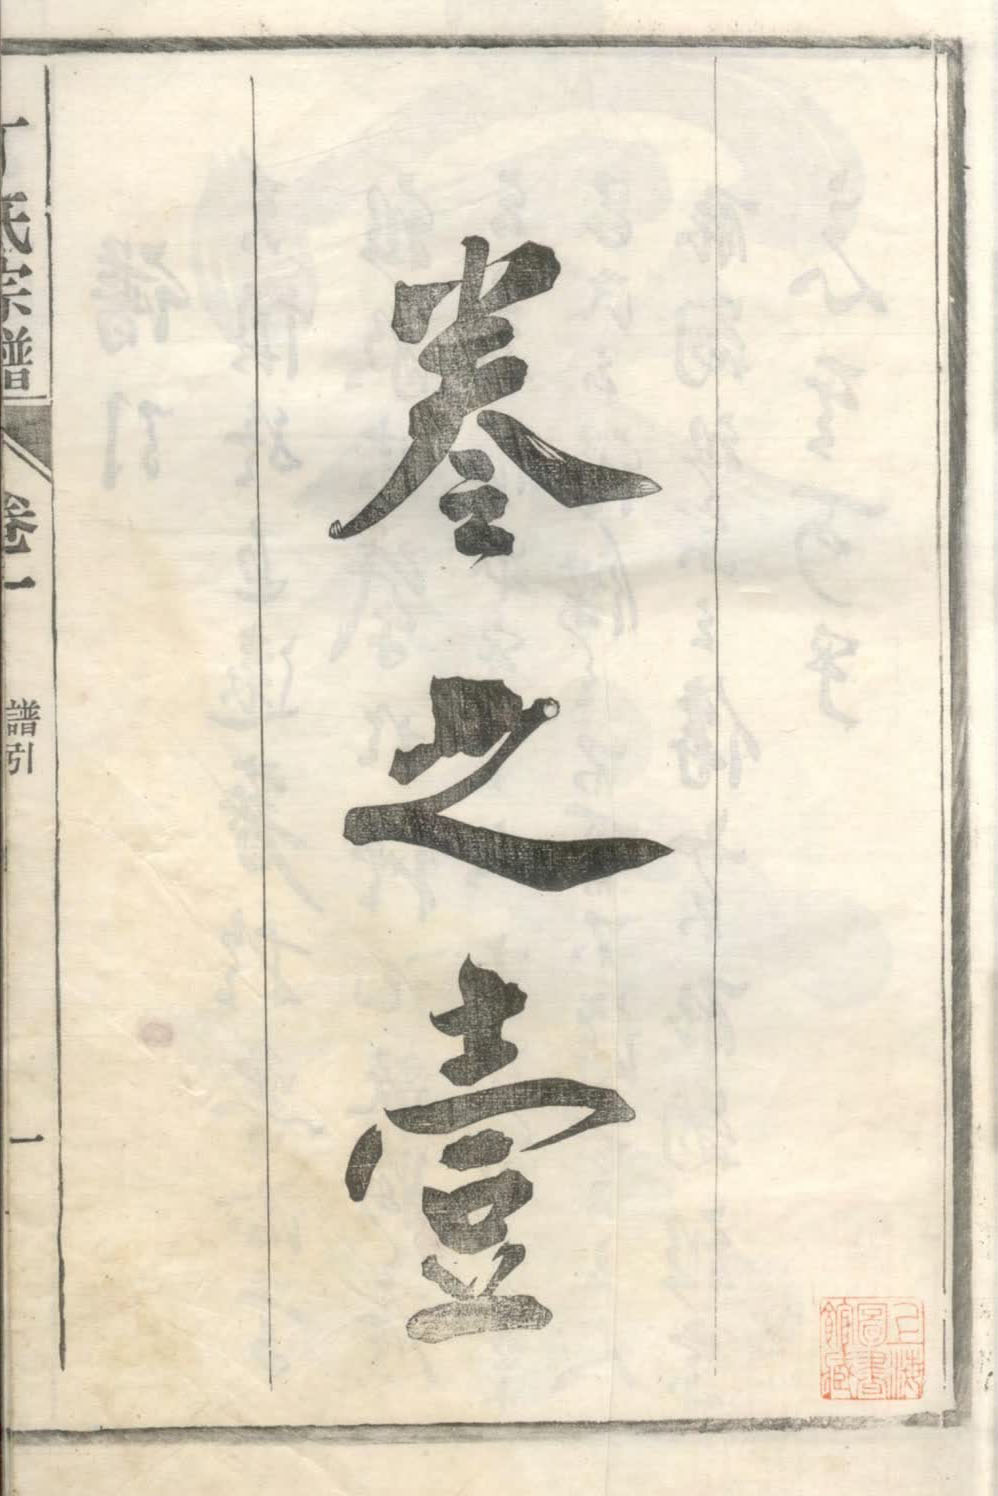 卷之壹
丁氏宗譜
卷一
譜引
一
上海圖書館藏